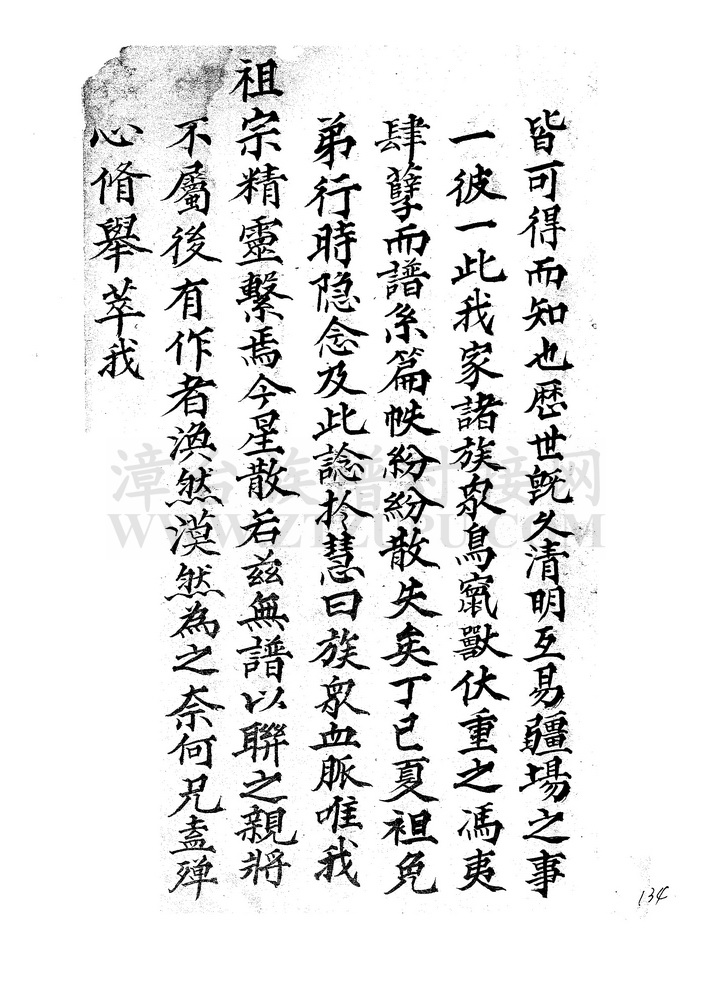 皆可得而知也歷世旣久清明互易疆場之事
一彼一此我家諸族衆鳥竄獸伏重之馮夷
肆孽而譜系篇帙紛紛散失矣丁巳夏袒免
弟行時隐念及此諗扵慧曰族衆血脈唯我
祖宗精靈繫焉今星散若兹無譜以聯之親將
不屬後有作者渙然漠然為之奈何兄盍殫
心脩舉萃我
漳台族谱对接网
WWW.ZTZUPU.COM
134